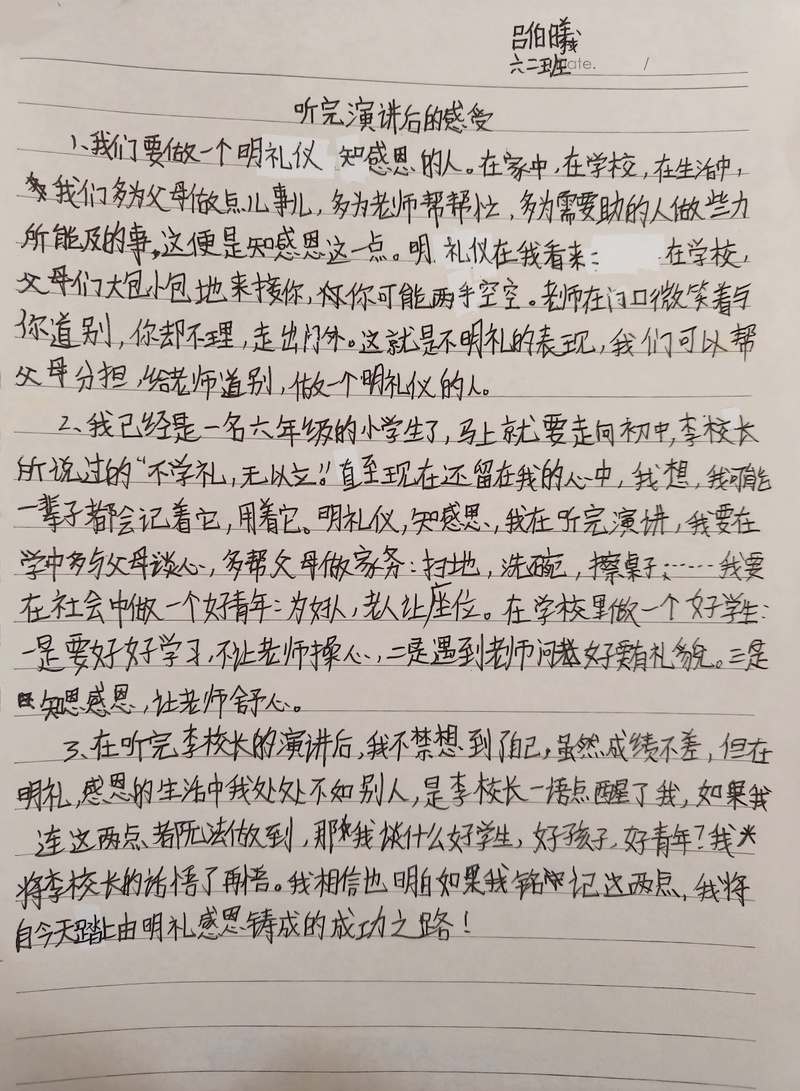 吕伯曦
六二班 ate. /
听完演讲后的感受
1、我们要做一个明礼仪 知感恩的人。在家中,在学校,在生活中,
我们多为父母做点儿事儿,多为老师帮帮忙,多为需要助的人做些力
所能及的事,这便是知感恩这一点。明 礼仪在我看来: 在学校,
父母们大包小包地来接你,你可能两手空空。老师在门口微笑着与
你道别,你却不理,走出门外。这就是不明礼的表现,我们可以帮
父母分担,给老师道别,做一个明礼仪的人。
2、我已经是一名六年级的小学生了,马上就要走向初中,李校长
所说过的“不学礼,无以立!”直至现在还留在我的心中,我想,我可能
一辈子都会记着它,用着它。明礼仪,知感恩,我在听完演讲,我要在
学中多与父母谈心,多帮父母做家务:扫地,洗碗,擦桌子;……我要
在社会中做一个好青年:为妇人,老人让座位。在学校里做一个好学生:
一是要好好学习,不让老师操心,二是遇到老师问好要有礼貌。三是
知恩感恩,让老师舒心。
3、在听完李校长的演讲后,我不禁想到了自己,虽然成绩不差,但在
明礼,感恩的生活中我处处不如别人,是李校长一语点醒了我,如果我
连这两点都无法做到,那我谈什么好学生,好孩子,好青年?我
将李校长的话悟了再悟。我相信也明白如果我铭记这两点,我将
自今天踏上由明礼感恩铸成的成功之路!